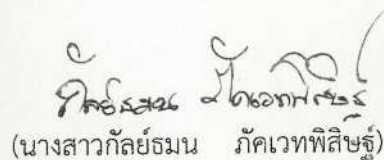 กัลย์ธมน ภัคเวทพิสิษฐ์
(นางสาวกัลย์ธมน ภัคเวทพิสิษฐ์)